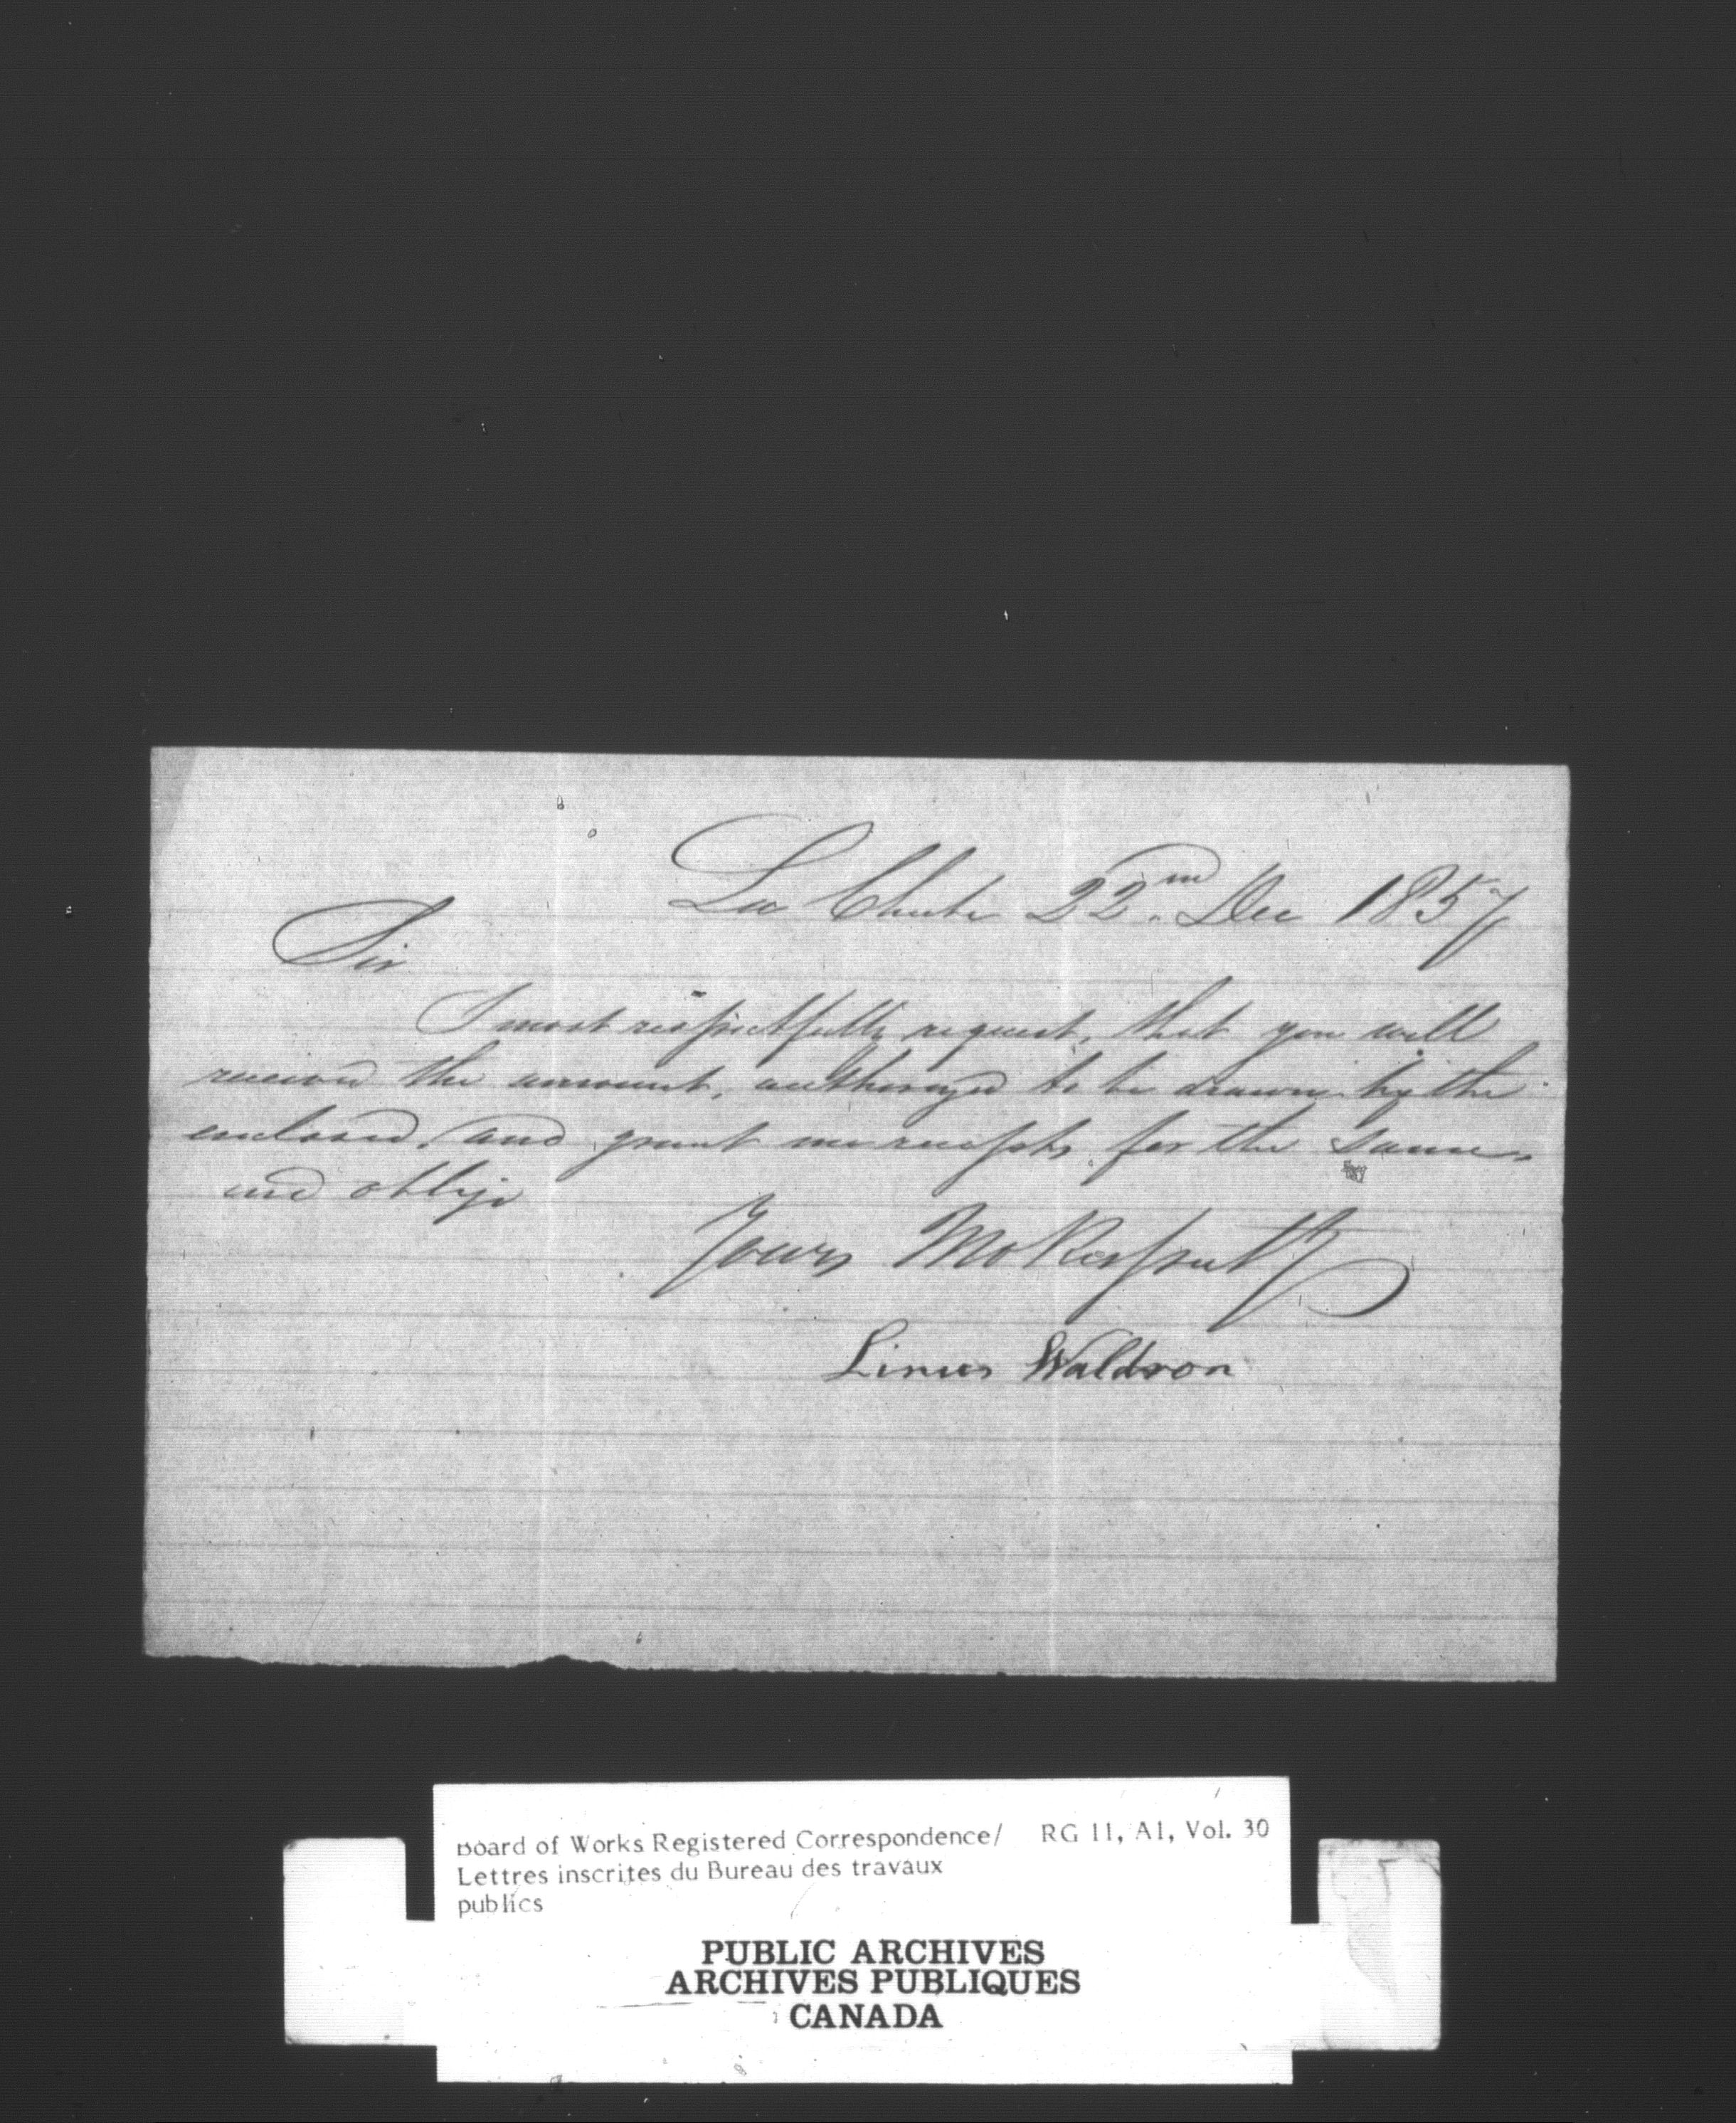 La Chute 22nd. Dec 1857
Sir
I most respectfully request, that you will
receive the amount, authorized to be drawn by the
enclosed, and grant me receipts for the same,
and oblige
Yours Mo Respectfy
Linus Waldron
Board of Works Registered Correspondence/ RG 11, A1, Vol. 30
Lettres inscrites du Bureau des travaux
publics
PUBLIC ARCHIVES
ARCHIVES PUBLIQUES
CANADA